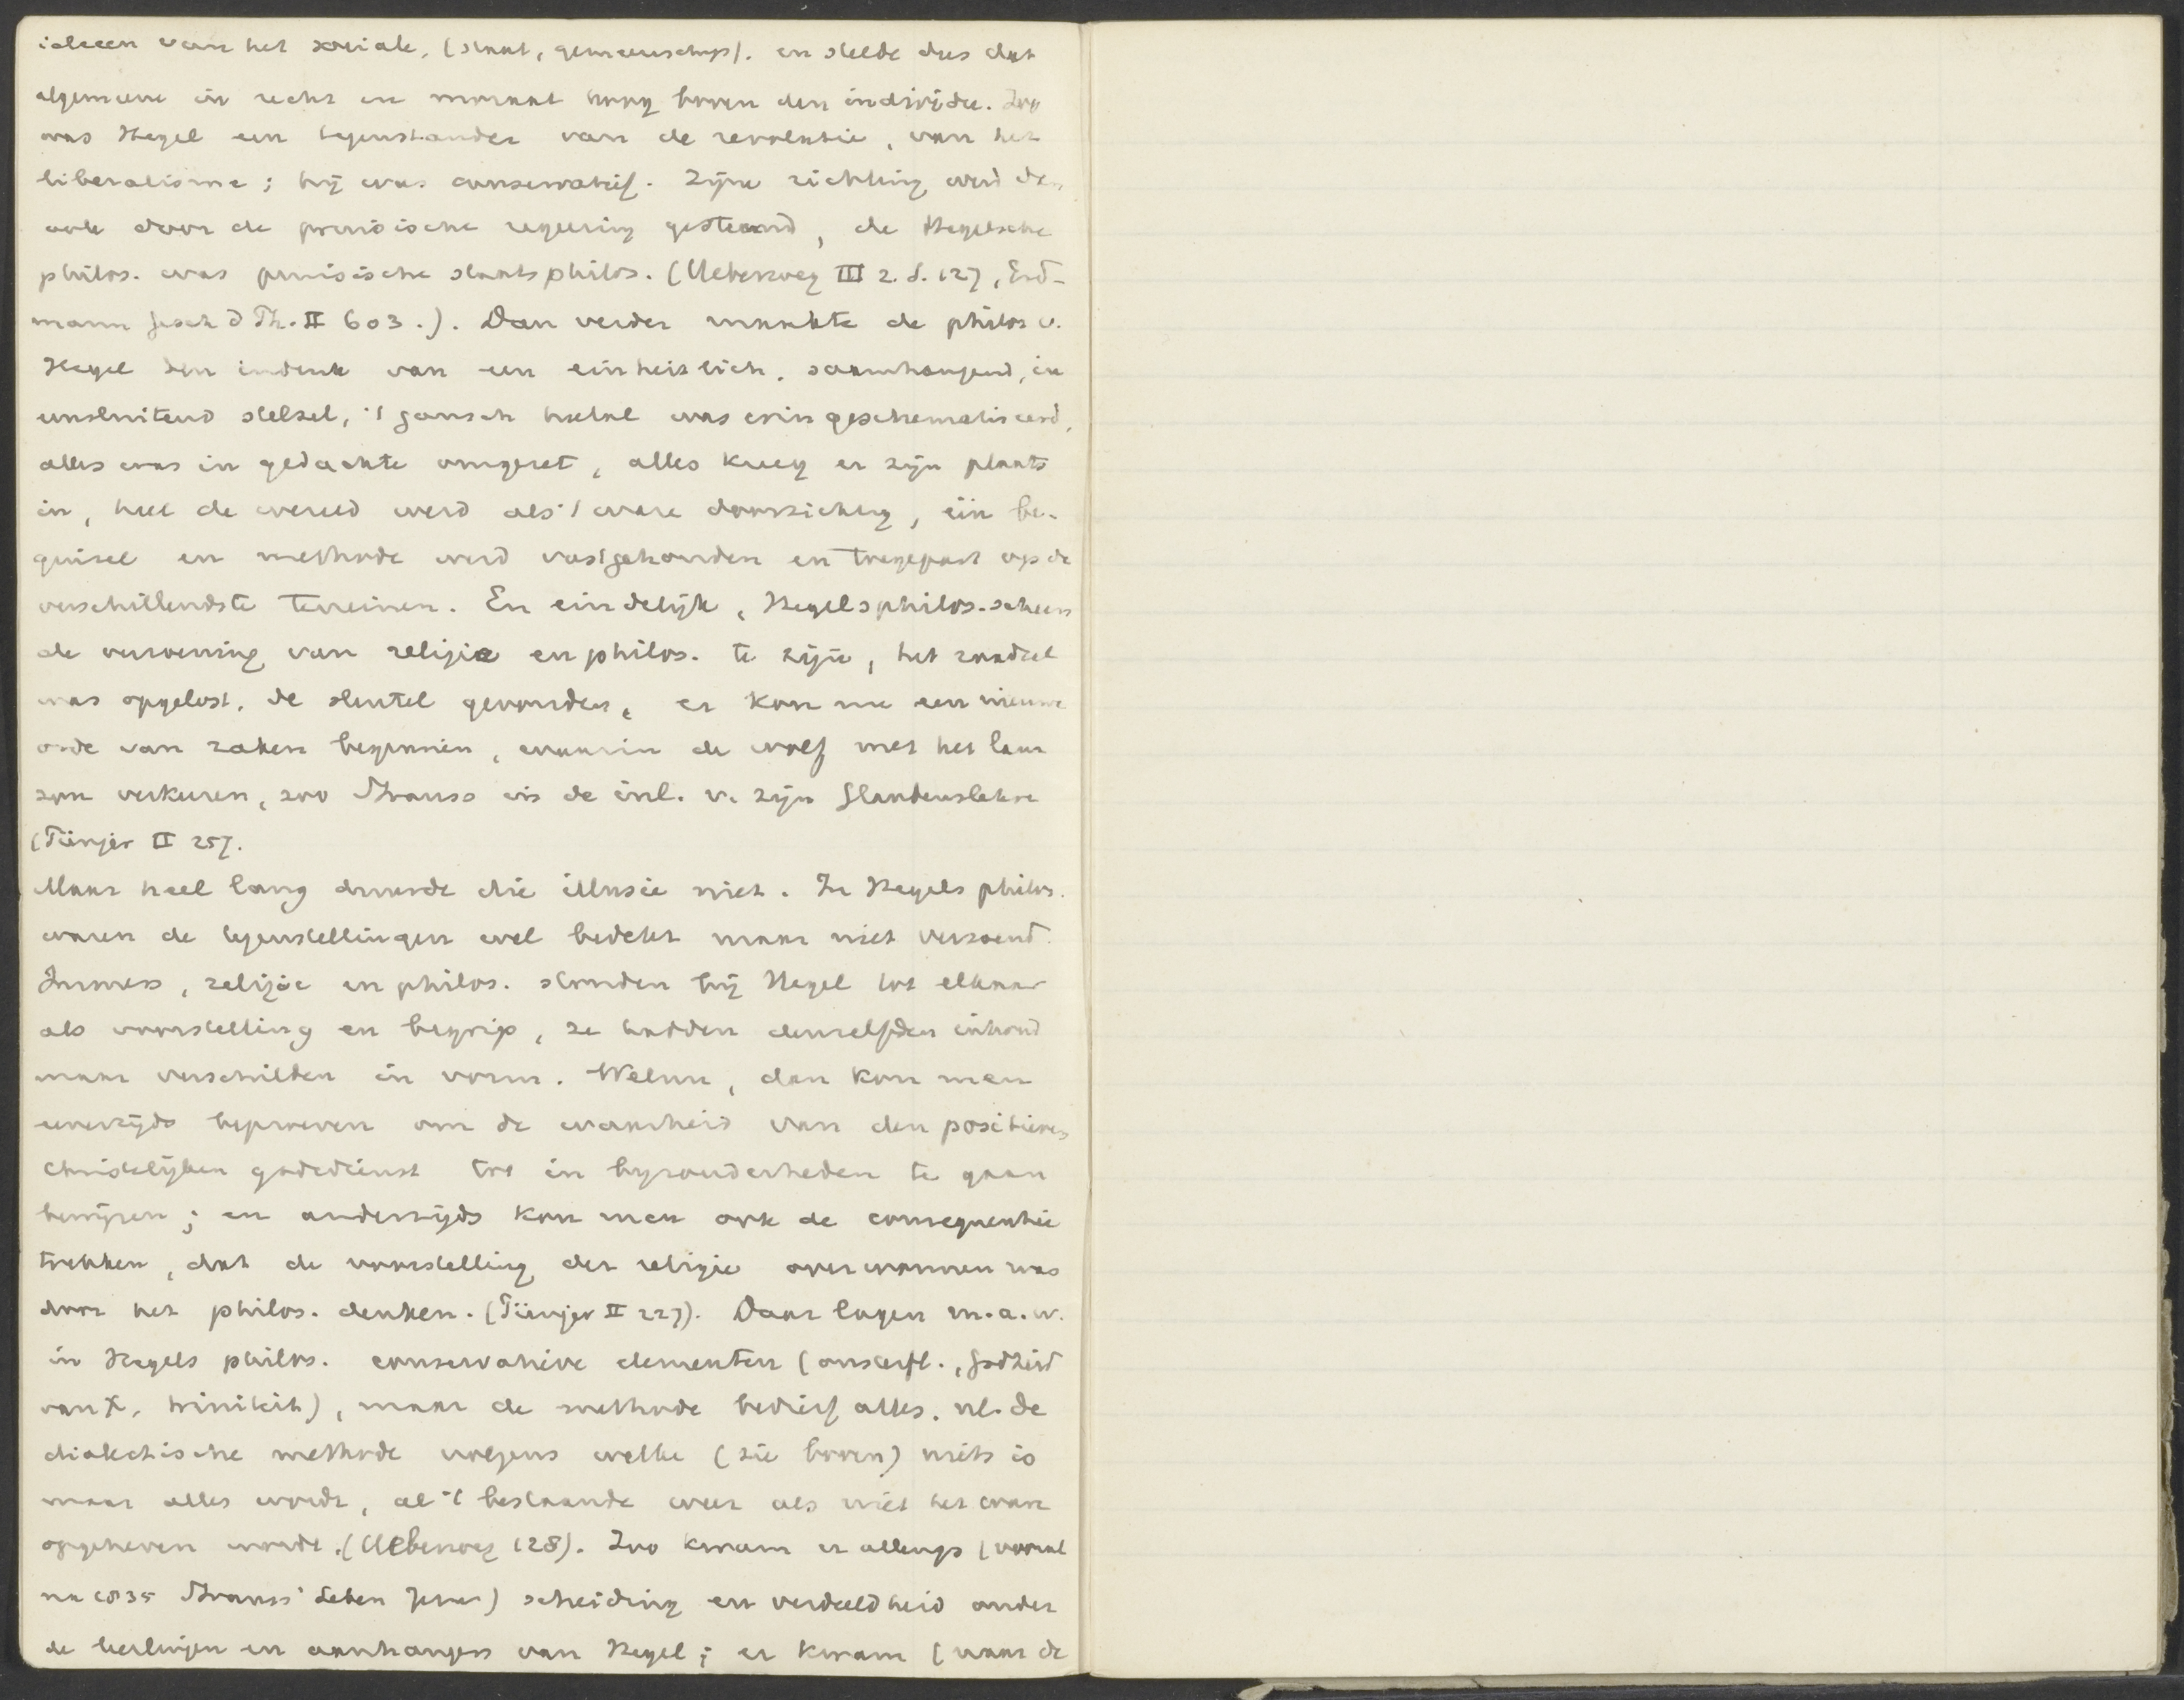 ideeen van het sociale, (staat, gemeenschap). en stelde dus dat
algemeene in recht en moraal hoog boven den individu. Zoo
was Hegel een tegenstander van de revolutie, van het
liberalisme; hij was conservatief. Zijne richting werd dan
ook door de pruisische regeering gesteund, de Hegelsche
philos. was pruisische staatsphilos. (Ueberweg III 2. S. 127, Erd-
mann Gesch d Ph. II 603.). Dan verder maakte de philos v.
Hegel den indruk van een einheitlich, saamhangend, in
eensluitend stelsel, 't gansch heelal was erin geschematiseerd,
alles was in gedachte omgezet, alles kreeg er zijn plaats
in, heel de wereld werd als 't ware doorzichtig, één be-
ginsel en methode werd vastgehouden en toegepast op de
verschillendste terreinen. En eindelijk, Hegels philos. scheen
de verzoening van religie en philos. te zijn, het raadsel
was opgelost, de sleutel gevonden, er kon nu een nieuwe
orde van zaken beginnen, waarin de wolf met het lam
zou verkeeren, zoo Strauss in de inl. v. zijn Glaubenslehre
(Pünjer II 257.
Maar heel lang duurde die illusie niet. In Hegels philos.
waren de tegenstellingen wel bedekt maar niet verzoend.
Immers, religie en philos. stonden bij Hegel tot elkaar
als voorstelling en begrip, ze hadden denzelfden inhoud
maar verschilden in vorm. Welnu, dan kon men
eenerzijds beproeven om de waarheid van den positieven
christelijken godsdienst tot in byzonderheden te gaan
bewijzen; en anderzijds kon men ook de consequentie
trekken, dat de voorstelling der religie overwonnen was
door het philos. denken. (Pünjer II 227). Daar lagen m.a.w.
in Hegels philos. conservatieve elementen (onsterfl., Godheid
van X, triniteit), maar de methode bedierf alles. nl. de
dialectische methode volgens welke (zie boven) niets is
maar alles wordt, al 't bestaande weer als niet het ware
opgeheven wordt. (Ueberweg 128). Zoo kwam er allengs (vooral
na 1835 Strauss' Leben Jesu) scheiding en verdeeldheid onder
de leerlingen en aanhangers van Hegel; er kwam (naar de